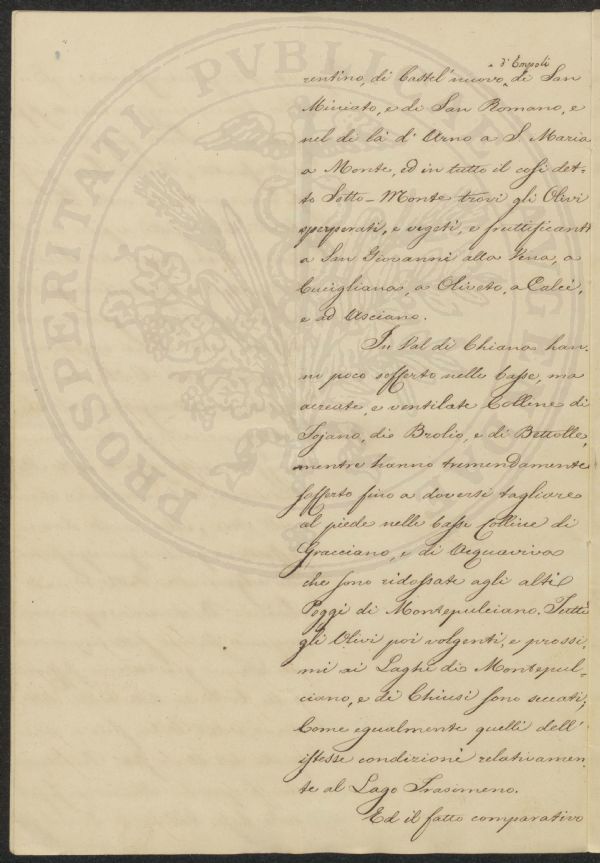 d'Empoli
rentino, di Castel'nuovo, di San
Miniato, e di San Romano, e
nel di là d'Arno a S. Maria
a Monte, ed in tutto il così det-
to Sotto-Monte trovi gli Olivi
prosperati, e vegeti, e fruttificanti
a San Giovanni alla Vena, a
Cucigliana, a Oliveto, a Calci,
e ad Asciano.
In Val di Chiana han-
no poco sofferto nelle basse, ma
aereate, e ventilate Colline di
Fojano, di Brolio, e di Bettolle,
mentre hanno tremendamente
sofferto fino a doversi tagliare
al piede nelle basse Colline di
Gracciano, e di Acquaviva
che sono ridossate agli alti
Poggi di Montepulciano. Tutti
gli Olivi poi volgenti, e prossi-
mi ai Laghi di Montepul-
ciano, e di Chiusi sono seccati,
Come egualmente quelli dell'
istesse condizioni relativamen-
te al Lago Trasimeno.
Ed il fatto comparativo
PROSPERITATI PVBLICAE